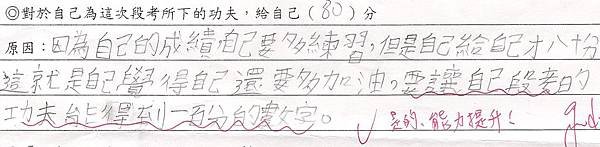 ◎對於自己為這次段考所下的功夫，給自己（80）分
原因：因為自己的成績自己要多練習，但是自己給自己才八十分
這就是自己覺得自己還要多加油，要讓自己段考的
功夫能得到一百分的數字。
是的、能力提升！